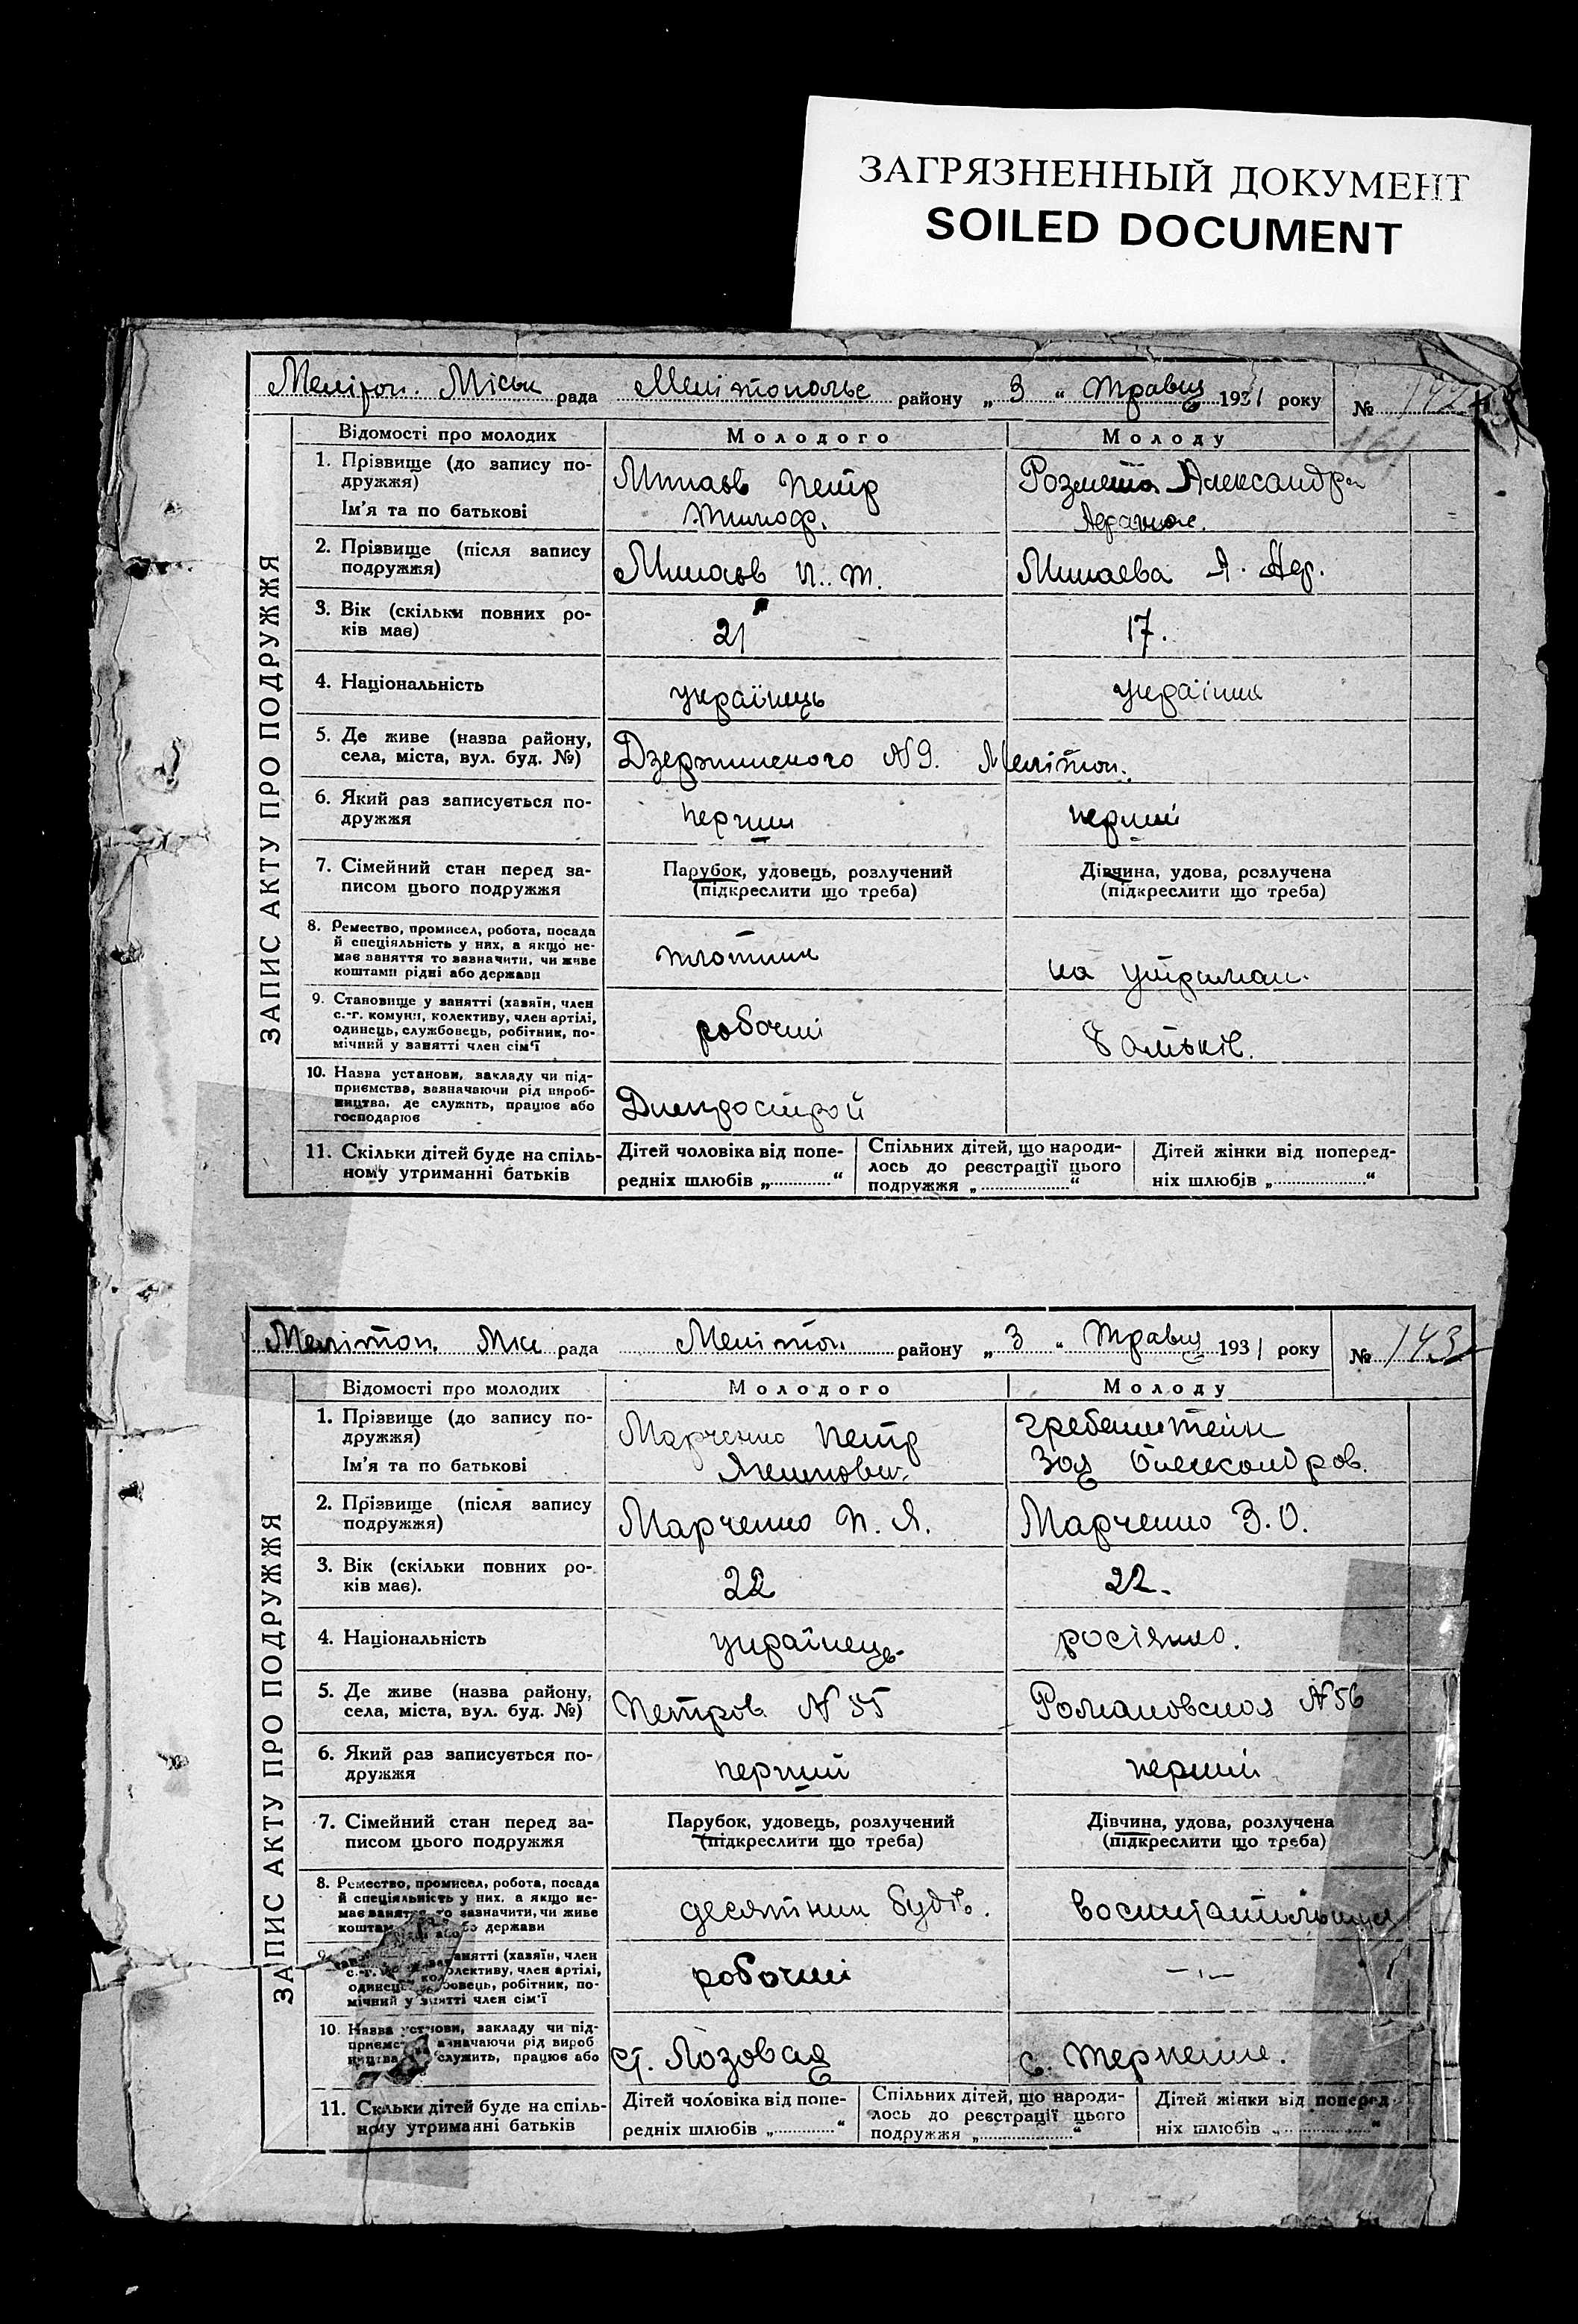 ЗАГРЯЗНЕННЫЙ ДОКУМЕНТ
SOILED DOCUMENT
Меліпол. Міськ рада Мелітопольс району „ 3 “ Травня 1931 року № 142
161
ЗАПИС АКТУ ПРО ПОДРУЖЖЯ
Відомості про молодих Молодого Молоду
1. Прізвище (до запису подружжя)
Ім'я та по батькові
Минаєв Петр
Тимоф.
Александра
2. Прізвище (після запису подружжя)
Минаєв П. Т.
Минаева А.
3. Вік (скільки повних років має)
21
17.
4. Національність
українець
україінка
5. Де живе (назва району, села, міста, вул. буд. №)
Дзержинского №9. Мелітоп.
6. Який раз записується подружжя
перший
перший
7. Сімейний стан перед записом цього подружжя
Парубок, удовець, розлучений
(підкреслити що треба)
Дівчина, удова, розлучена
(підкреслити що треба)
8. Ремество, промисел, робота, посада й спеціяльність у них, а якщо немає заняття то зазначити, чи живе коштами рідні або держави
плотник
на утриман.
9. Становище у занятті (хазяїн, член с.-г. комуни, колективу, член артілі, одинець, службовець, робітник, помічний у занятті член сім'ї
робочий
батьків.
10. Назва установи, закладу чи підприємства, зазначаючи рід виробництва, де служить, працює або господарює
Днепрострой
11. Скільки дітей буде на спільному утриманні батьків
Дітей чоловіка від попередніх шлюбів „ “
Спільних дітей, що народилось до реєстрації цього подружжя „ “
Дітей жінки від попередніх шлюбів „ “
Мелітоп. Міс рада Мелітоп. району „ 3 “ Травня 1931 року № 143
ЗАПИС АКТУ ПРО ПОДРУЖЖЯ
Відомості про молодих Молодого Молоду
1. Прізвище (до запису подружжя)
Ім'я та по батькові
Марченко Петр
Гребенштейн
Зоя Олександров.
2. Прізвище (після запису подружжя)
Марченко П. Я.
Марченко З. О.
3. Вік (скільки повних років має).
22
22.
4. Національність
українець
росіянка.
5. Де живе (назва району, села, міста, вул. буд. №)
Петров. № 35
Романовская №56
6. Який раз записується подружжя
перший
перший
7. Сімейний стан перед записом цього подружжя
Парубок, удовець, розлучений
(підкреслити що треба)
Дівчина, удова, розлучена
(підкреслити що треба)
8. Ремество, промисел, робота, посада й спеціяльність у них, а якщо немає заняття то зазначити, чи живе коштам або держави
десятник будів.
воспитательниця
9. занятті (хазяїн, член с.-г. колективу, член артілі, одинець, робітник, помічний у занятті член сім'ї
робочий
— ı —
10. Назва установи, закладу чи підприємства зазначаючи рід вироб служить, працює або
ст. Лозовая
с. Терпение.
11. Скільки дітей буде на спільному утриманні батьків
Дітей чоловіка від попередніх шлюбів „ “
Спільних дітей, що народилось до реєстрації цього подружжя „ “
Дітей жінки від попередніх шлюбів „ “